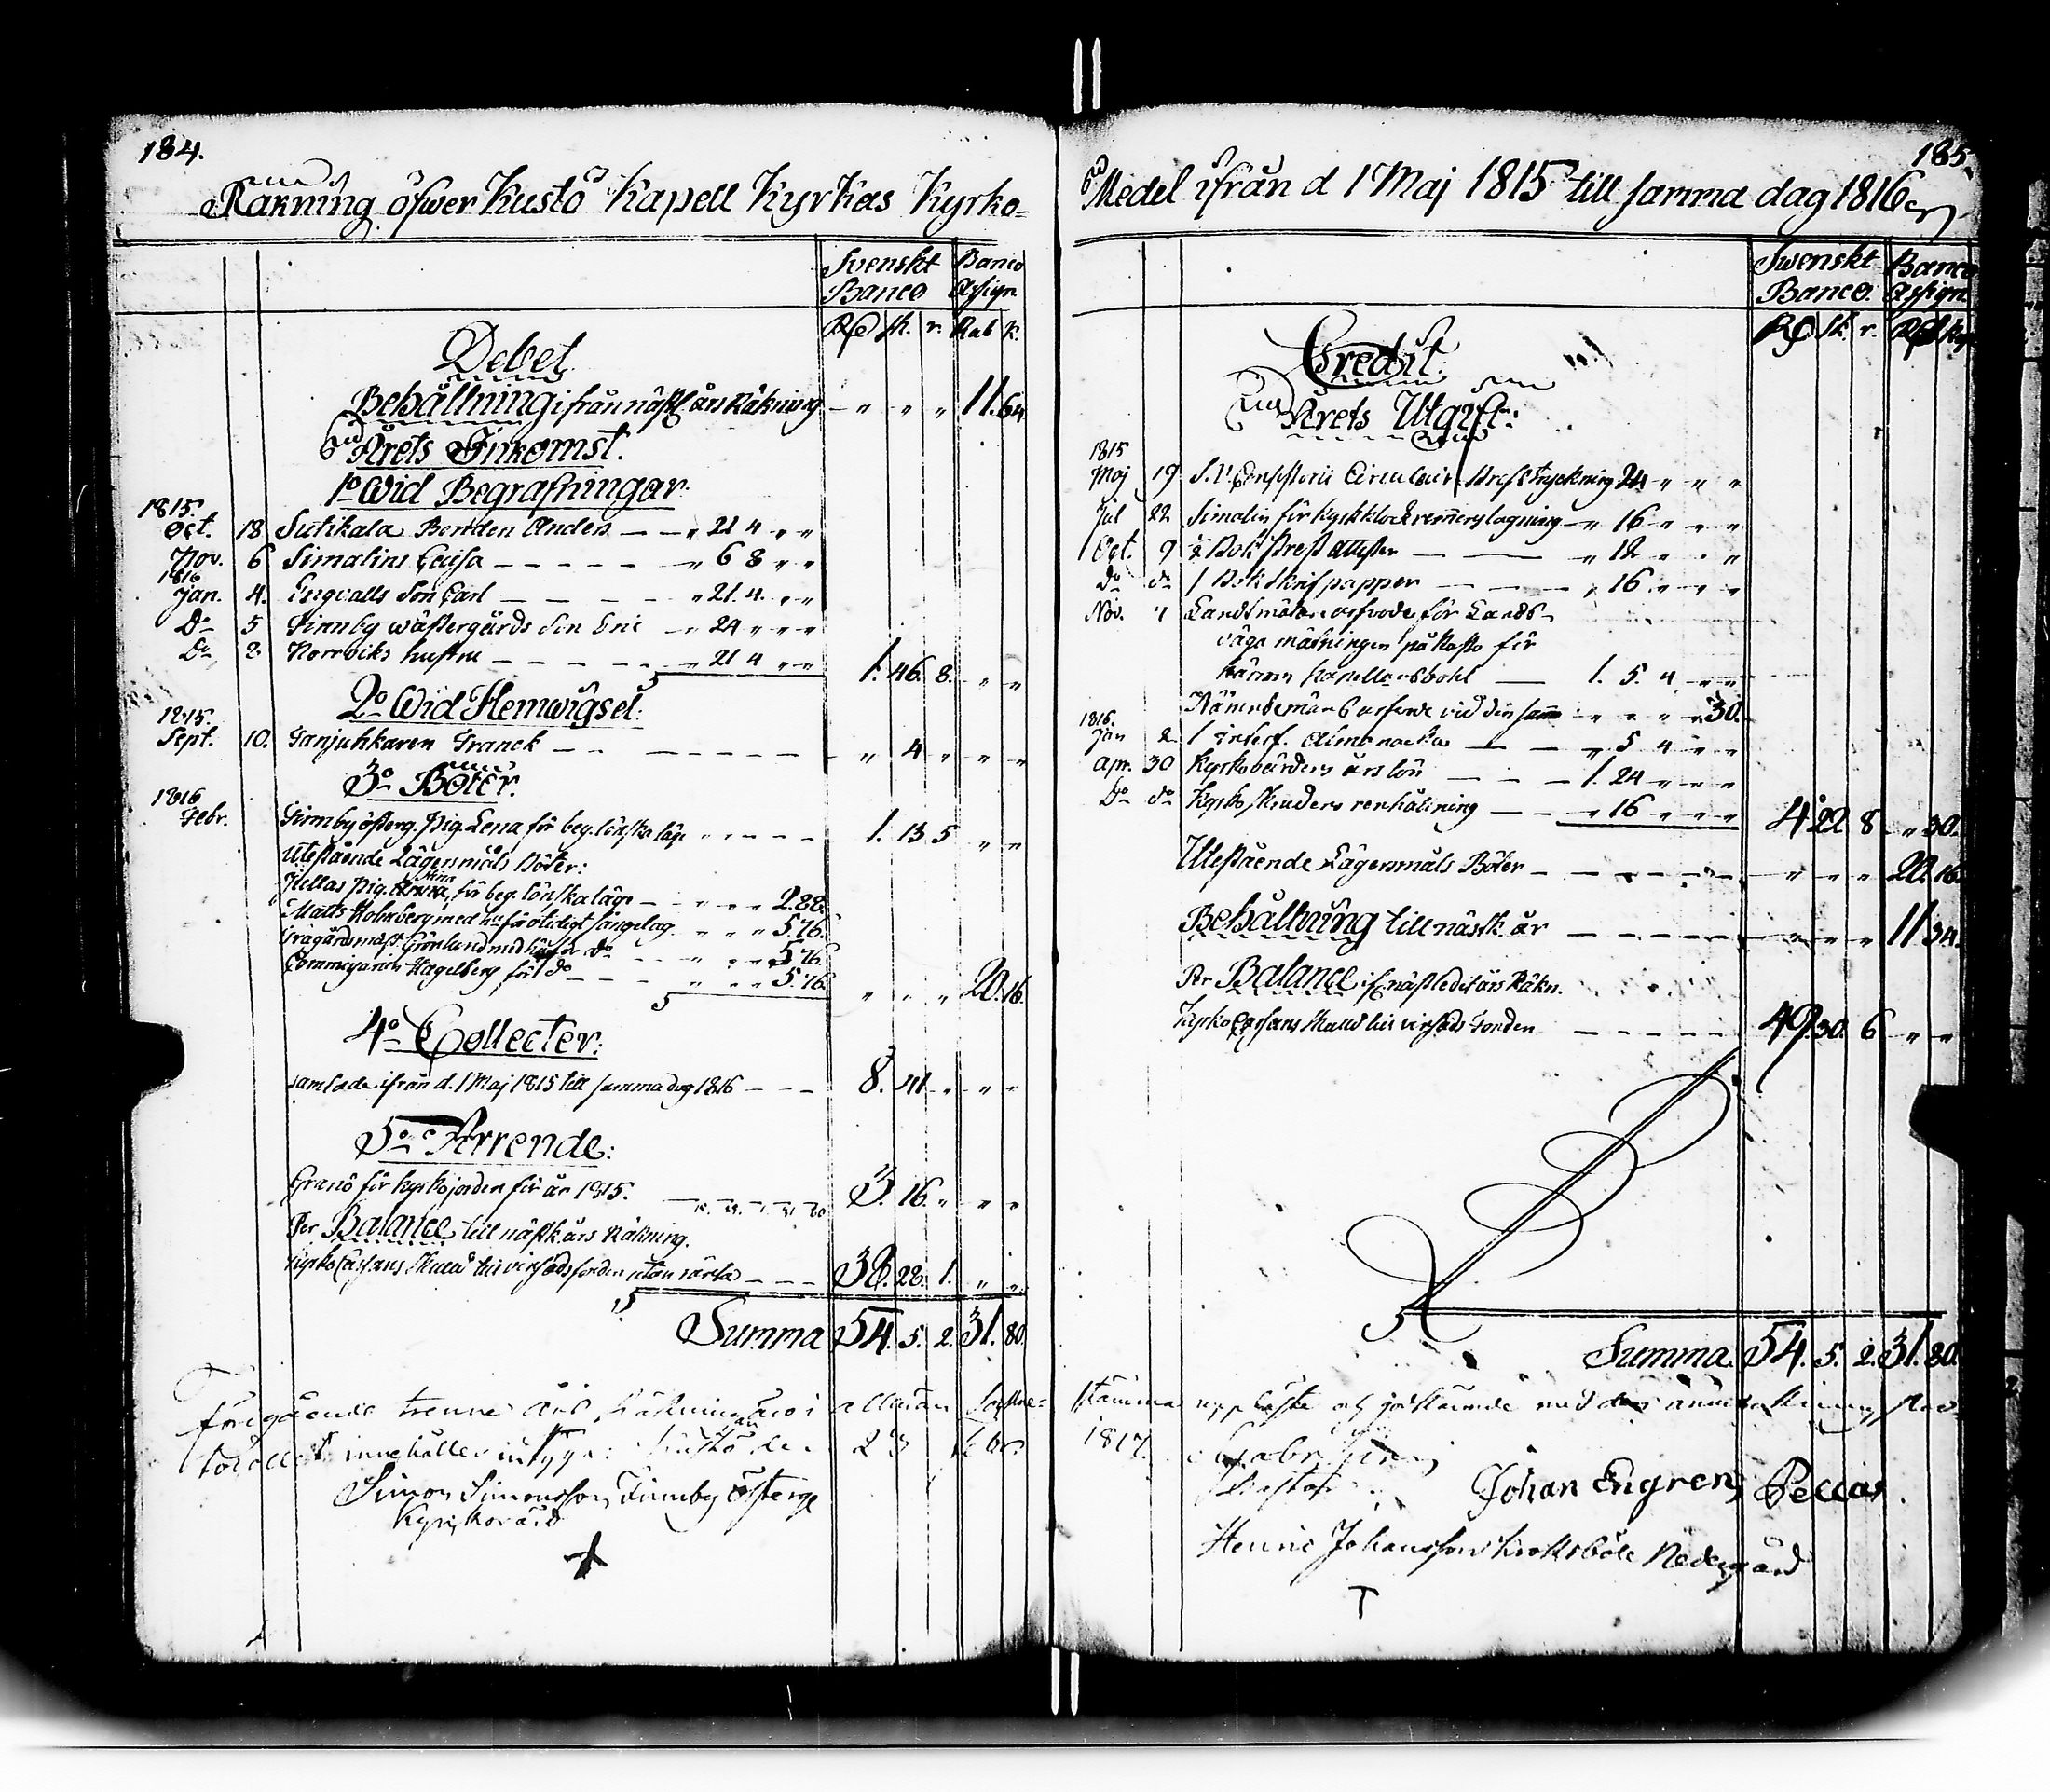 184.
Räkning öfwer Kustö Kapell Kyrkas Kyrko-
Svenskt Banco
Banco Assign.
Rd sk. r. Rub k.
Debet
Behållning ifrån näst. års Räkning - " " " 11. 64
Årets Inkomst.
1o Wid Begrafningar.
1815.
Oct. 18 Sukkala Bonden Anders - - " 21 4 " "
Nov. 6 Simalins Caisa - - - - - " 6 8 " "
1816
Jan. 4. Engvalls Son Carl - - - - " 21. 4. " "
Do 5 Finnby wästergårds Son Eric - " 24 " " "
Do 2. Norrviks hustru - - - - - " 21 4 " " 1. 46. 8. " "
2o Wid Hemwigsel:
1815.
Sept. 10. Franck - - - - - - - " 4 " " "
3o Böter.
1816
Febr. Finnby österg. Pig. Lena för beg. lönskaläge " - - - - 1. 13 5 " "
Utestående Lägersmåls Böter:
Pig. Stina för beg. lönskaläge - - " " " 2.88.
Matts Holmberg med hu för otidigt sängelag. " " " 5.76.
Grönlund med hu för do - - " " " 5.76
Hagelberg för do - - - " " " 5.76. " " " 20. 16.
4o Collecter:
samlade ifrån d. 1 Maj 1815 till samma dag 1816 - - - 8. 41 " " "
5o Arrende:
Granö för kyrkojorden för år 1815. 3. 16. " " "
Per Balance till nästk. års Räkning.
Kyrko Cassans skuld utan ränta - - - 38. 22. 1. " "
Summa 54. 5. 2. 31. 80.
Föregående trenne års Räkningar äro i allmän Sockne=
innehåller intyga: Kustö den 23 Febr.
Simon Simonsson Finnby Österg
Kyrkovärd
185.
Medel ifrån d 1 Maj 1815 till samma dag 1816
Swenskt Banco.
Banco Assign.
Rd sk. r.
Credit.
Årets Utgift:
1815
Maj 19 Consistorii Circulair 24 " " "
Jul 22 Simalin för - " 16 " " "
Oct. 9 - - " 12 " " "
Do do 1 Bok Skrifpapper - - - " 16 " " "
Nov. 7 Landtmätare arfvode för Lands-
väga mätningen på Kustö för
Kapellansbohl - 1. 5. 4 " "
Nämndemäns arfvode vid din samma " " " " 30.
1816.
Jan 2 1 Almanacka - - " 5 4 " "
Apr. 30 Kyrkovärdens årslön - - - 1. 24 " " "
Do do Kyrko skruders renhålning - - " 16 " " " 4 22 8 " 30.
Utestående Lägersmåls Böter - - - - - - " " " 20. 16.
Behållning till nästk. år - - - - - - " " " 11 34.
Per Balance ifr. nästledit års Räkn.
Kyrko Cassans skuld - - - - - 49. 30. 6 " "
Summa. 54. 5. 2. 31. 80.
stämma uppläste och
1817.
Pastor
Johan Engren Peccas
Henric Johansson Kroksböle Nedergård